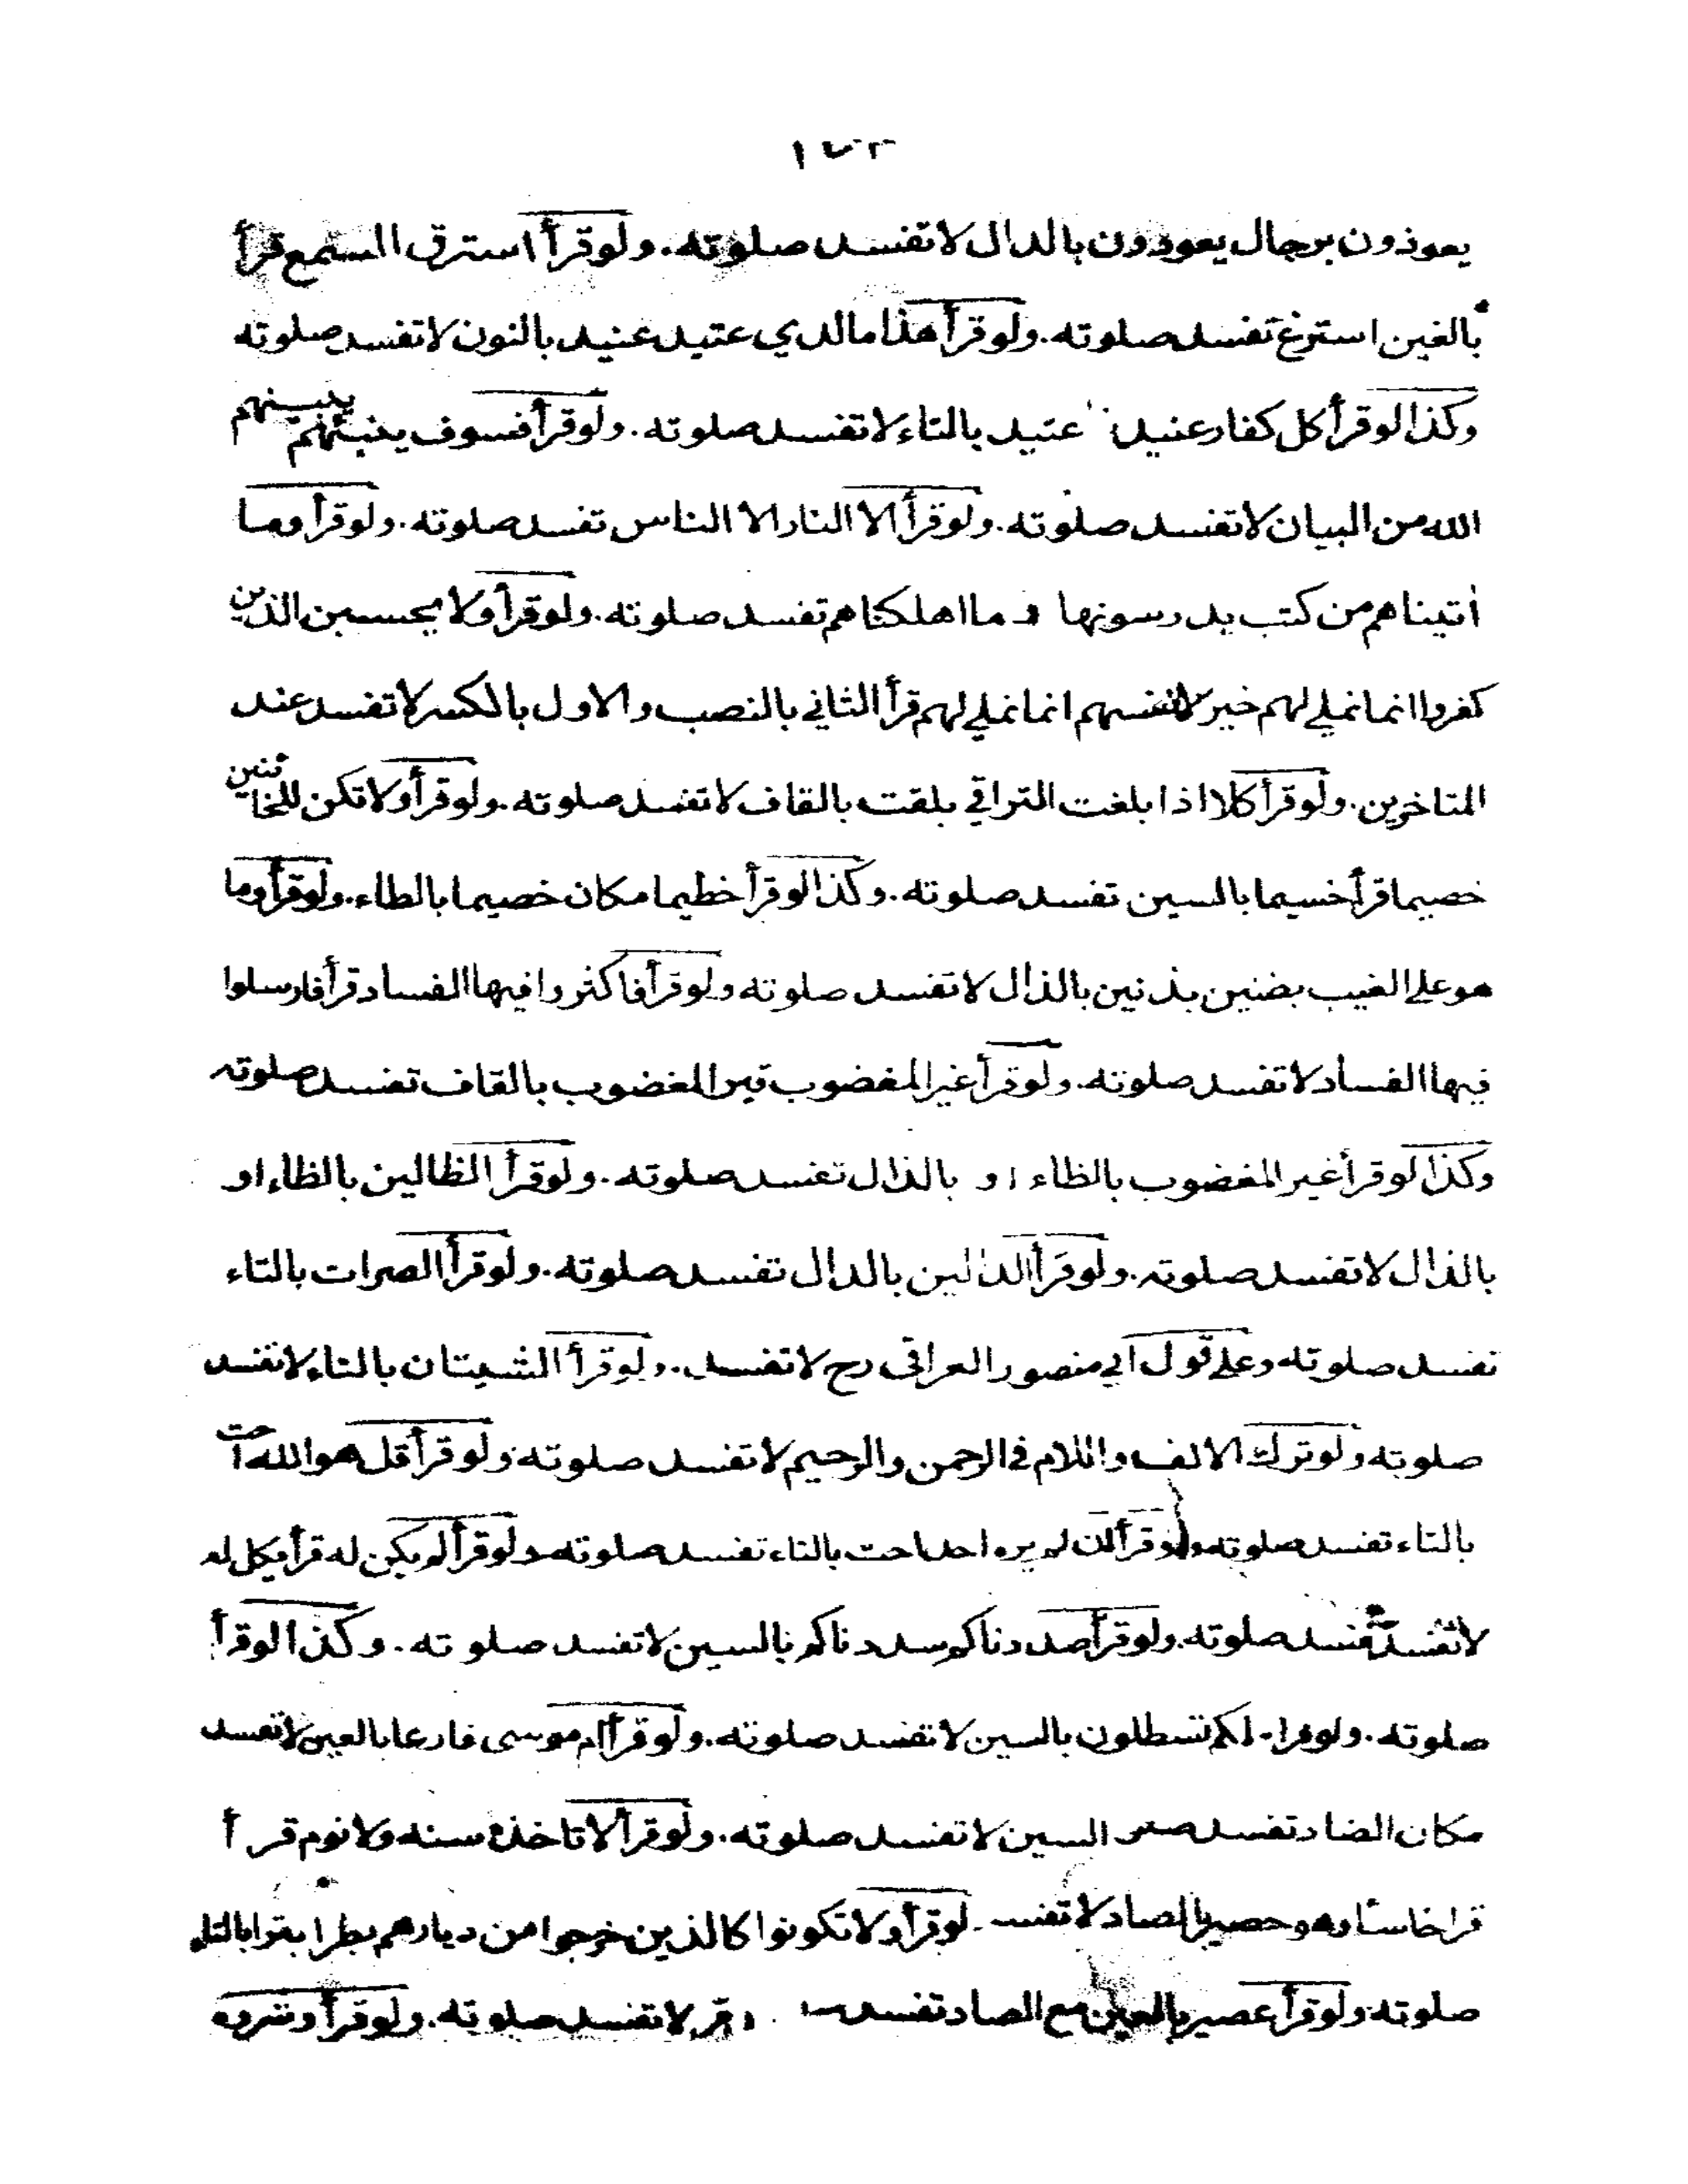 ١٧٢
يعوذون برجال يعودون بالدال لا تفسد صلوته. ولو قرأ استرق السمع قرأ
بالغين استرغ تفسد صلوته. ولو قرأ هذا ما لدي عتيد عنيد بالنون لا تفسد صلوته
وكذا لو قرأ كل كفار عنيد عتيد بالتاء لا تفسد صلوته. ولو قرأ فسوف ينبئهم يبينهم
الله من البيان لا تفسد صلوته. ولو قرأ الا النار الا الناس تفسد صلوته. ولو قرأ وما
اتيناهم من كتب يدرسونها وما اهلكناهم تفسد صلوته. ولو قرأ ولا يحسبن الذين
كفروا انما نملي لهم خير لانفسهم انما نملي لهم قرأ الثاني بالنصب والاول بالكسر لا تفسد عند
المتاخرين. ولو قرأ كلا اذا بلغت التراقي بلقت بالقاف لا تفسد صلوته. ولو قرأ ولا تكن للخائنين
خصيما قرأ خسيما بالسين تفسد صلوته. وكذا لو قرأ خطيما مكان خصيما بالطاء. ولو قرأ وما
هو على الغيب بضنين بذنين بالذال لا تفسد صلوته ولو قرأ فاكثروا فيها الفساد قرأ فارسلوا
فيها الفساد لا تفسد صلوته. ولو قرأ غير المغضوب قير المغضوب بالقاف تفسد صلوته
وكذا لو قرأ غير المغضوب بالظاء او بالذال تفسد صلوته. ولو قرأ الظالين بالظاء او
بالذال لا تفسد صلوته. ولو قرأ الدالين بالدال تفسد صلوته. ولو قرأ الصرات بالتاء
تفسد صلوته وعلى قول ابي منصور العراقي رح لا تفسد. ولو قرأ الشيتان بالتاء لا تفسد
صلوته ولو ترك الالف واللام في الرحمن والرحيم لا تفسد صلوته ولو قرأ قل هو الله احت
بالتاء تفسد صلوته ولو قرأ لم يره احد احت بالتاء تفسد صلوته ولو قرأ لم يكن له قرأ يكل له
لا تفسد تفسد صلوته. ولو قرأ صددناكم سددناكم بالسين لا تفسد صلوته. وكذا لو قرأ
صلوته. ولو قرأ لكم تسطلون بالسين لا تفسد صلوته. ولو قرأ ام موسى فارعا بالعين لا تفسد
مكان الضاد تفسد السين لا تفسد صلوته. ولو قرأ لا تاخذه سنة ولا نوم قرأ
قرا خاسئا وهو حصير بالصاد لا تفسد لو قرأ ولا تكونوا كالذين خرجوا من ديارهم بطرا بالتاء
صلوته ولو قرأ عصير بالعين مع الصاد تفسد لا تفسد صلوته. ولو قرأ